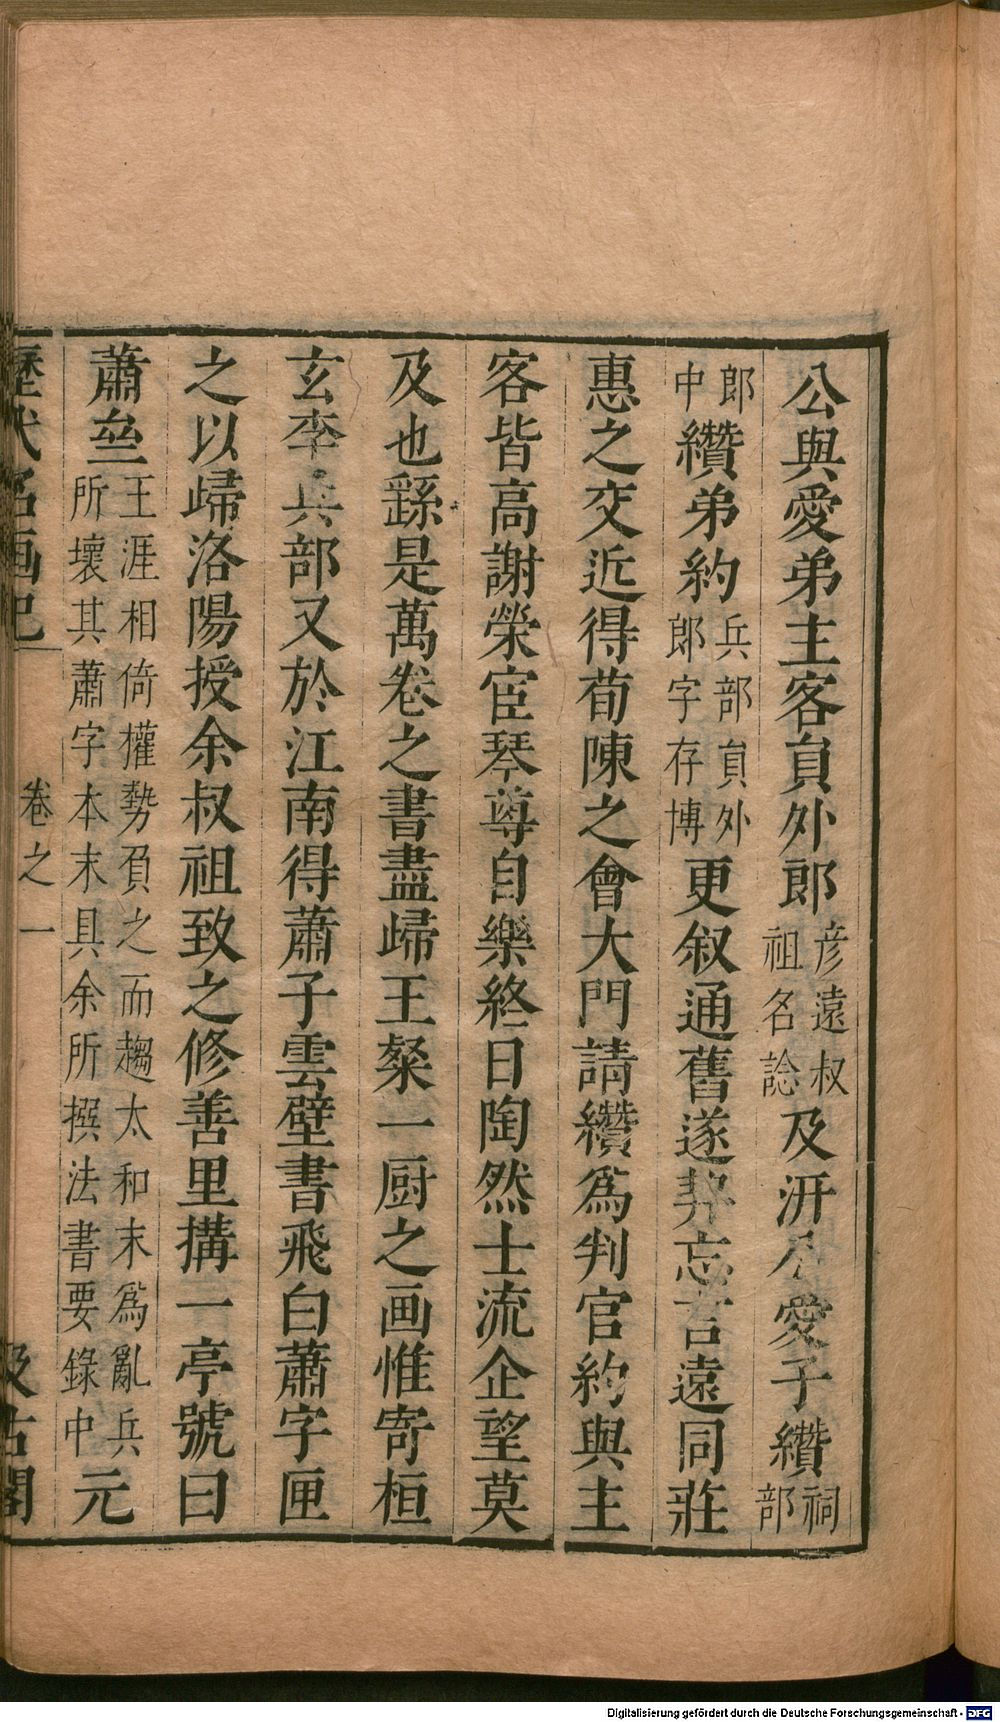 公與愛弟主客貟外郎彦遠叔祖名諗及汧公愛子纘祠部
郎中纘弟約兵部貟外郎字存博更叙通舊遂契忘言遠同莊
惠之交近得荀陳之會大門請纘爲判官約與主
客皆高謝榮宦琴尊自樂終日陶然士流企望莫
及也繇是萬卷之書盡歸王粲一厨之画惟寄桓
玄李兵部又於江南得蕭子雲壁書飛白蕭字匣
之以歸洛陽授余叔祖致之修善里搆一亭號曰
蕭𡊢王涯相倚權勢負之而趨太和末爲亂兵所壞其蕭字本末具余所撰法書要錄中元
歷代名画記 卷之一 汲古閣
Digitalisierung gefördert durch die Deutsche Forschungsgemeinschaft - DFG